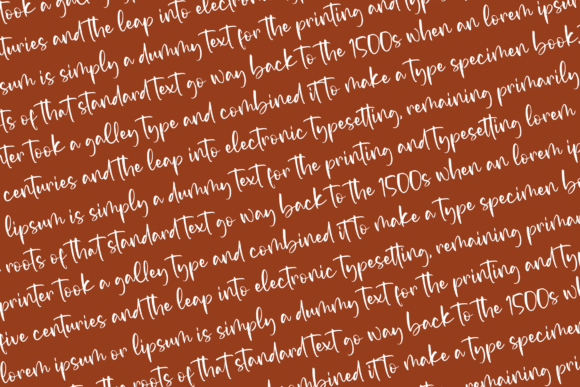 took a
nturies and the leap into electronic
psum is simply a dummy text for the printing and type
ts of that standard text go way back to the 1500s when an lorem ipsum
nter took a galley type and combined it to make a type specimen book.
centuries and the leap into electronic typesetting, remaining primarily
lipsum is simply a dummy text for the printing and typesetting lorem
roots of that standard text go way back to the 1500s when an lorem ip
printer took a galley type and combined it to make a type specimen boo
five centuries and the leap into electronic typesetting, remaining prima
lorem ipsum or lipsum is simply a dummy text for the printing and typ
the roots of that standard text go way back to the 1500s wh
combined it to make a type specimen
remaining